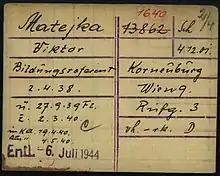 1640
Matejka 13862 Sch
Viktor 4.12.01.
Bildungsreferent Korneuburg
2.4.38. Wien 9.
ü. 27.9.39 Fl. Rufg. 3
z. 2.3.40 C vh. - ek. D
19.4.40.
4.5.40
Entl. - 6. Juli 1944